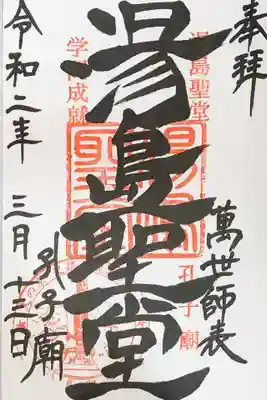 奉拝
湯島聖堂
萬世師表
湯島聖堂
孔子廟
学業成就
孔子廟
令和二年 三月十三日